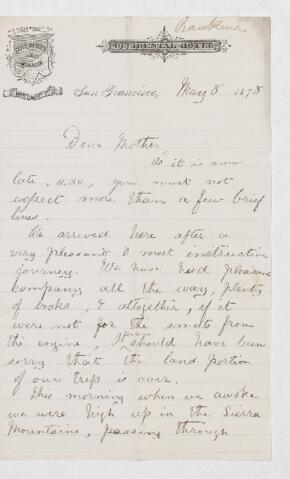 Rankin
OCCIDENTAL HOTEL
San Francisco, May 8 1878
Dear Mother,
As it is now
late, 11.30, you must not
expect more than a few brief
lines.
We arrived here after a
very pleasant & most instructive
journey. We have had pleasant
company all the way, plenty
of books, & altogether, if it
were not for the smuts from
the engine, I should have been
sorry that the land portion
of our trip is over.
This morning when we awoke
we were high up in the Sierra
Mountains, passing through